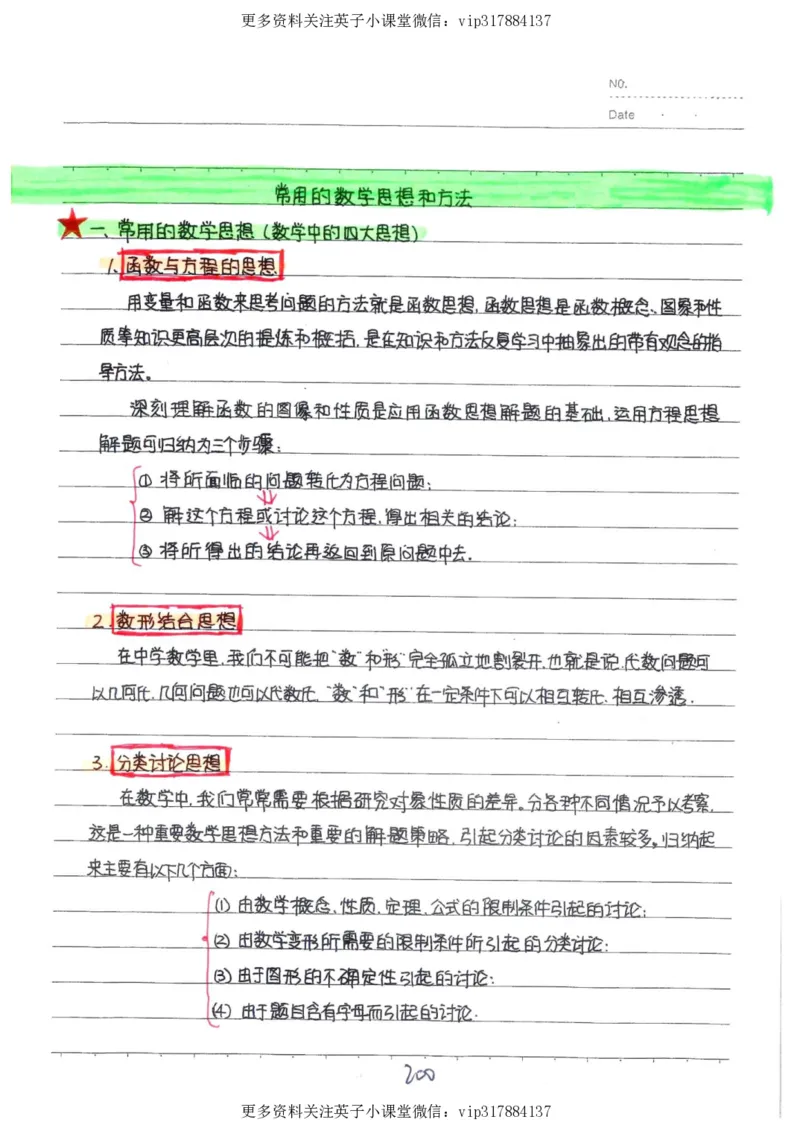 更多资料关注英子小课堂微信：vip317884137
NO.
Date
常用的数学思想和方法
一、常用的数学思想（数学中的四大思想）
1. 函数与方程的思想
用变量和函数来思考问题的方法就是函数思想，函数思想是函数概念、图象和性
质等知识更高层次的提炼和概括，是在知识和方法反复学习中抽象出的带有观念的指
导方法。
深刻理解函数的图像和性质是应用函数思想解题的基础，运用方程思想
解题可归纳为三个步骤：
① 将所面临的问题转化为方程问题；
② 解这个方程或讨论这个方程，得出相关的结论；
③ 将所得出的结论再返回到原问题中去．
2. 数形结合思想
在中学数学里，我们不可能把“数”和“形”完全孤立地割裂开，也就是说，代数问题可
以几何化，几何问题也可以代数化，“数”和“形”在一定条件下可以相互转化、相互渗透．
3. 分类讨论思想
在数学中，我们常常需要根据研究对象性质的差异。分各种不同情况予以考察，
这是一种重要数学思想方法和重要的解题策略，引起分类讨论的因素较多。归纳起
来主要有以下几个方面：
(1) 由数学概念、性质、定理、公式的限制条件引起的讨论；
(2) 由数学变形所需要的限制条件所引起的分类讨论；
(3) 由于图形的不确定性引起的讨论；
(4) 由于题目含有字母而引起的讨论．
200
更多资料关注英子小课堂微信：vip317884137